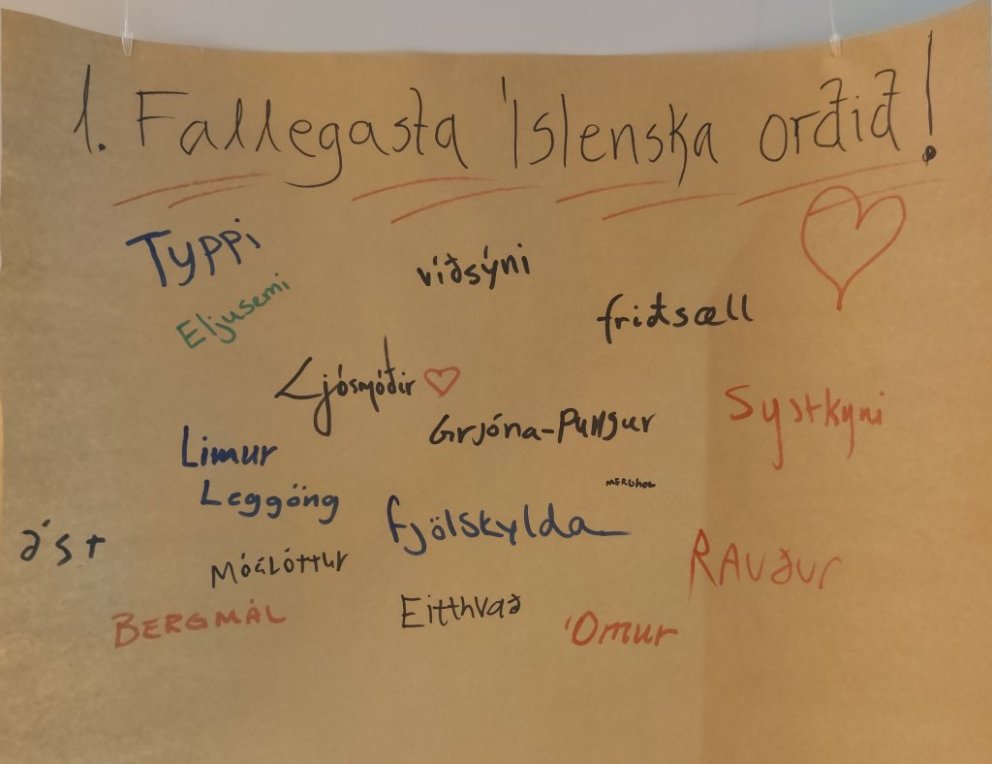 1. Fallegasta Íslenska orðið!
Typpi
víðsýni
Eljusemi
friðsæll
Ljósmóðir
Systkyni
Grjóna-Pungur
Limur
Leggöng
fjölskylda
ást
Móglóttur
Rauður
BERGMÁL
Eitthvað
Ómur